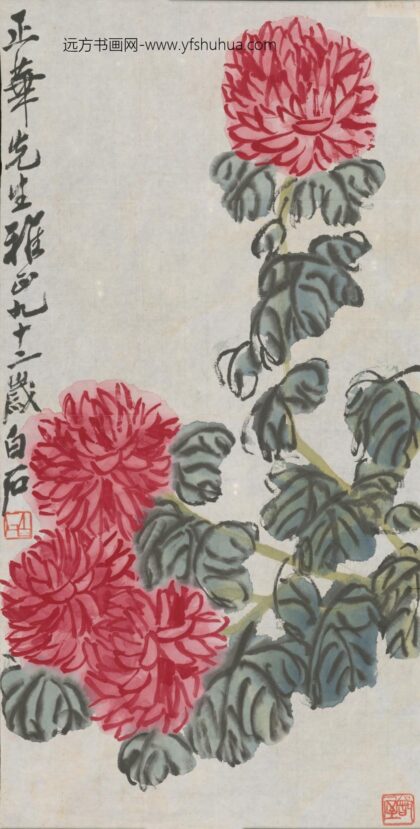 远方书画网-www.yfshuhua.com
正華先生雅正九十二歲白石